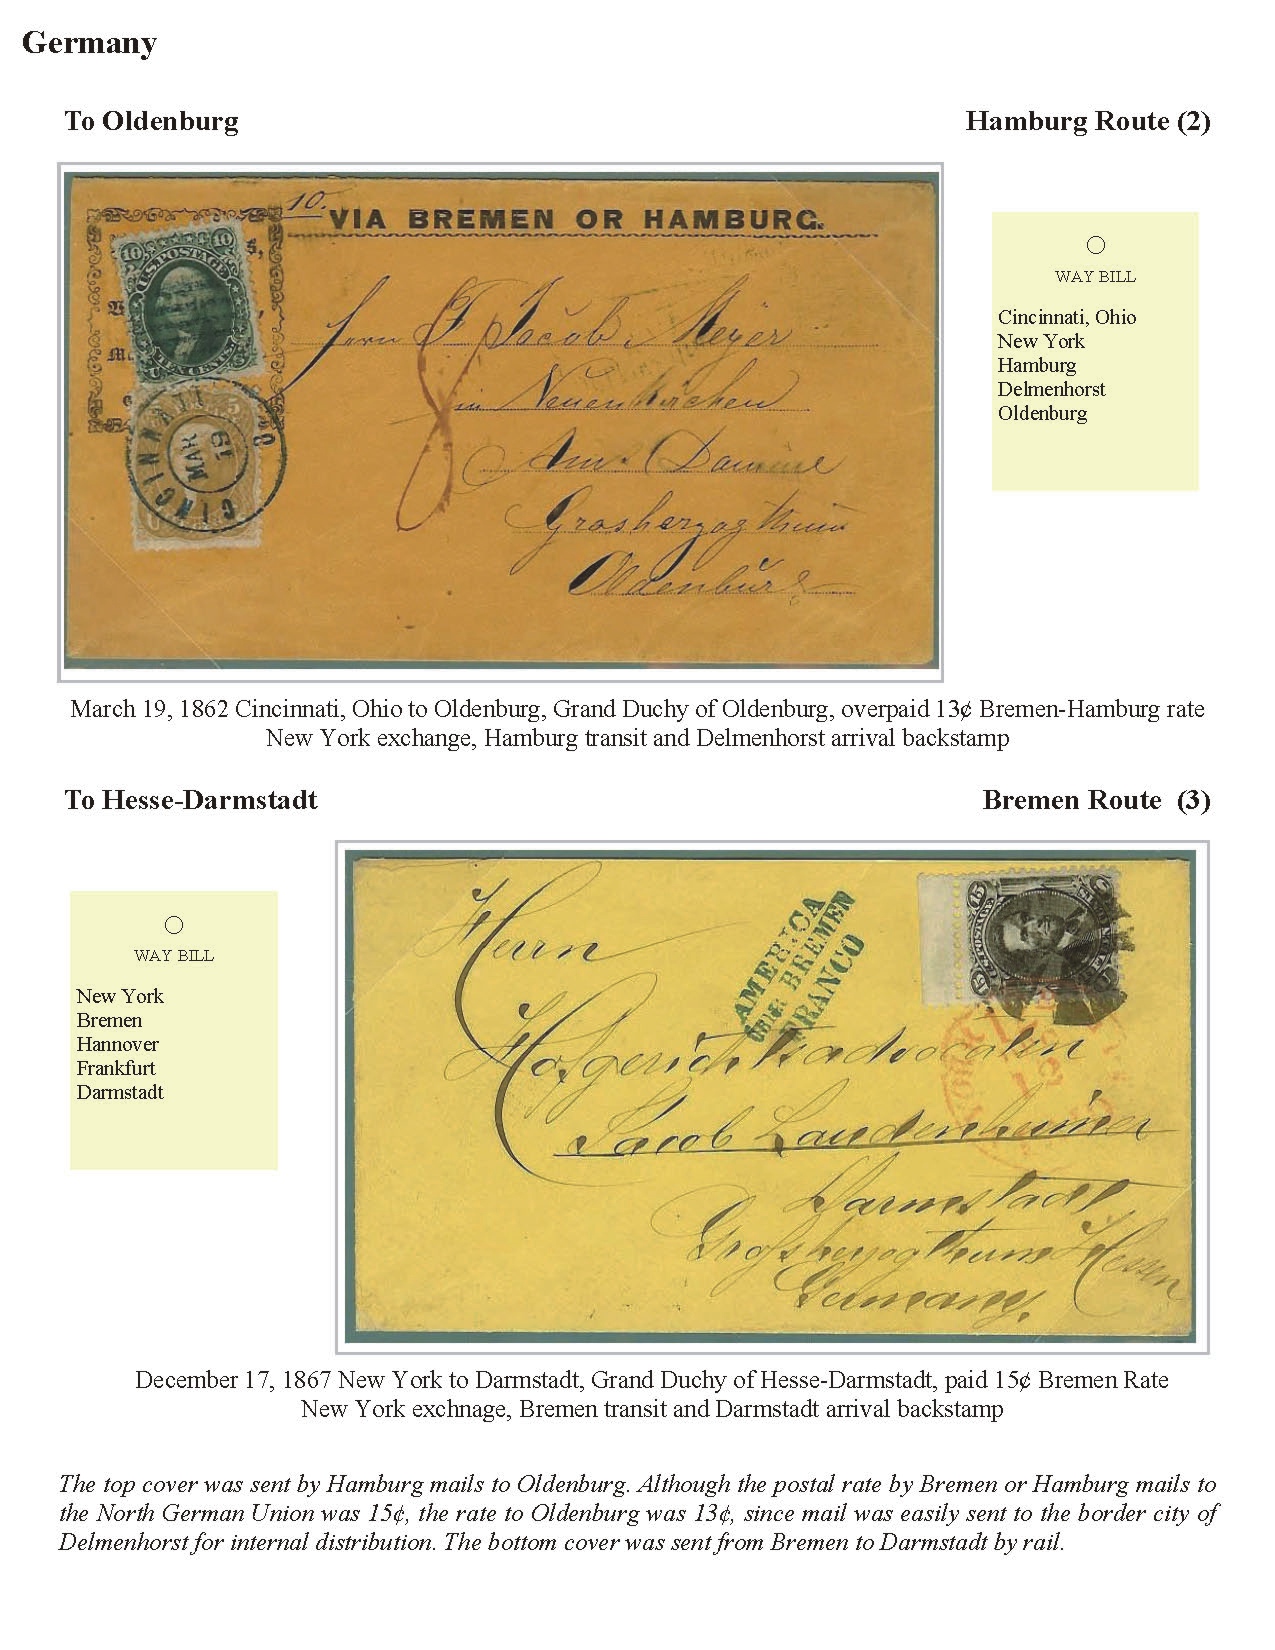 Germany
To Oldenburg
Hamburg Route (2)
10.
VIA BREMEN OR HAMBURG.
10 10
U.S. POSTAGE
TEN CENTS
CINCINNATI
MAR
19
8
Herrn J. Jacob Meyer
in Neuenkirchen
Amt Damme
Grosherzogthum
Oldenburg
WAY BILL
Cincinnati, Ohio
New York
Hamburg
Delmenhorst
Oldenburg
March 19, 1862 Cincinnati, Ohio to Oldenburg, Grand Duchy of Oldenburg, overpaid 13¢ Bremen-Hamburg rate
New York exchange, Hamburg transit and Delmenhorst arrival backstamp
To Hesse-Darmstadt
Bremen Route (3)
WAY BILL
New York
Bremen
Hannover
Frankfurt
Darmstadt
AMERICA
über BREMEN
FRANCO
15
U.S. POSTAGE
15
Herrn
Hofgerichtsadvocaten
Jacob Laudenheimer
Darmstadt
Grofsherzogthum Hessen
Germany.
December 17, 1867 New York to Darmstadt, Grand Duchy of Hesse-Darmstadt, paid 15¢ Bremen Rate
New York exchnage, Bremen transit and Darmstadt arrival backstamp
The top cover was sent by Hamburg mails to Oldenburg. Although the postal rate by Bremen or Hamburg mails to
the North German Union was 15¢, the rate to Oldenburg was 13¢, since mail was easily sent to the border city of
Delmenhorst for internal distribution. The bottom cover was sent from Bremen to Darmstadt by rail.